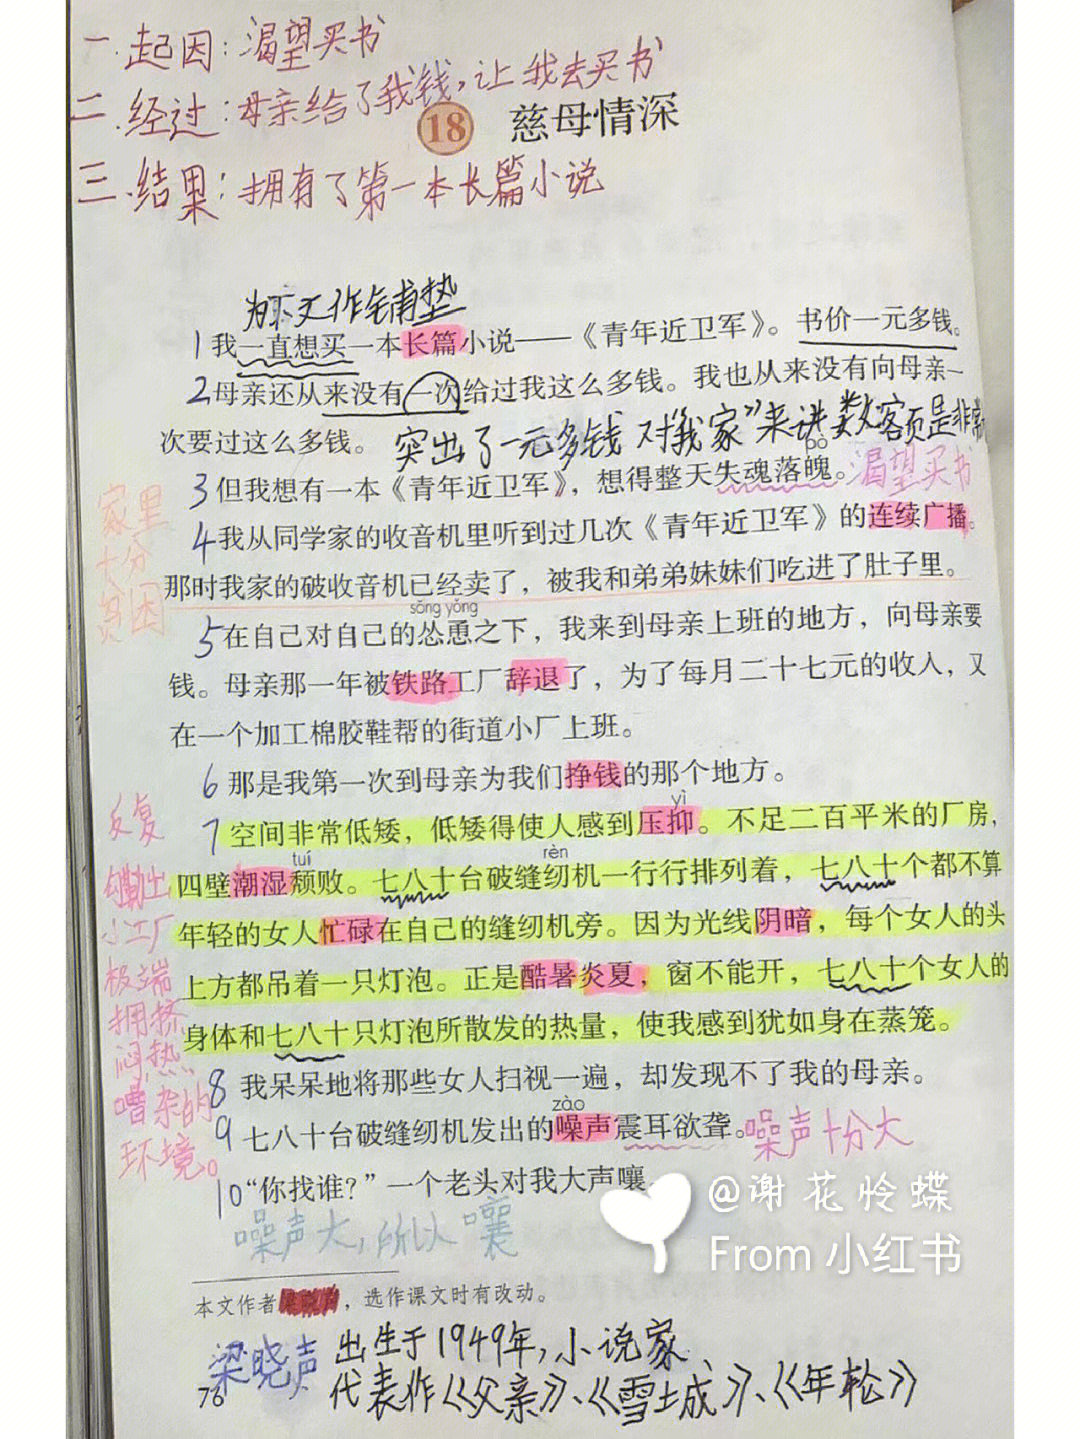 一.起因：渴望买书
二.经过：母亲给了我钱，让我去买书
18 慈母情深
三.结果：拥有了第一本长篇小说
为下文作铺垫
1我一直想买一本长篇小说——《青年近卫军》。书价一元多钱。
2母亲还从来没有一次给过我这么多钱。我也从来没有向母亲一
次要过这么多钱。
突出了一元多钱对“我家”来讲数额是非常
pò
3但我想有一本《青年近卫军》，想得整天失魂落魄。
渴望买书
家里
十分
贫困
4我从同学家的收音机里听到过几次《青年近卫军》的连续广播。
那时我家的破收音机已经卖了，被我和弟弟妹妹们吃进了肚子里。
sǒng yǒng
5在自己对自己的怂恿之下，我来到母亲上班的地方，向母亲要
钱。母亲那一年被铁路工厂辞退了，为了每月二十七元的收入，又
在一个加工棉胶鞋帮的街道小厂上班。
6那是我第一次到母亲为我们挣钱的那个地方。
反复
勾勒出
小工厂
极端
拥挤
闷热、
嘈杂的
环境。
yì
7空间非常低矮，低矮得使人感到压抑。不足二百平米的厂房，
tuí rèn
四壁潮湿颓败。七八十台破缝纫机一行行排列着，七八十个都不算
年轻的女人忙碌在自己的缝纫机旁。因为光线阴暗，每个女人的头
上方都吊着一只灯泡。正是酷暑炎夏，窗不能开，七八十个女人的
身体和七八十只灯泡所散发的热量，使我感到犹如身在蒸笼。
8我呆呆地将那些女人扫视一遍，却发现不了我的母亲。
zào
9七八十台破缝纫机发出的噪声震耳欲聋。
噪声十分大
10“你找谁？”一个老头对我大声嚷
噪声大，所以嚷
@谢花怜蝶
From 小红书
本文作者梁晓声，选作课文时有改动。
梁晓声 出生于1949年，小说家
代表作《父亲》、《雪城》、《年轮》
76